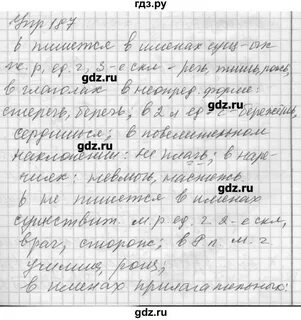 Упр 187
ь пишется в именах сущ-ых
ж. р, ед. ч, 3-е скл - речь, тишь, рожь,
в глаголах в неопред. форме:
стеречь, беречь, в 2 л ед ч - бережёшь,
сердишься; в повелительном
наклонении: не плачь; в наре-
чиях: невмочь, настежь.
ь не пишется в именах
существит. м. р ед. ч. 2-е скл,
врач, сторож; в Р п. м. ч
училищ, рощ;
в именах прилагательных:
gdz.ru
gdz.ru
gdz.ru
gdz.ru
gdz.ru
gdz.ru
gdz.ru